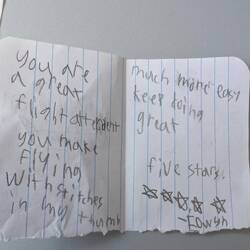 you are
a great
flight attendent
you make
flying
with stitches
in my thumb
much more easy
keep doing
great
five stars.
☆☆☆☆☆
-Eowyn